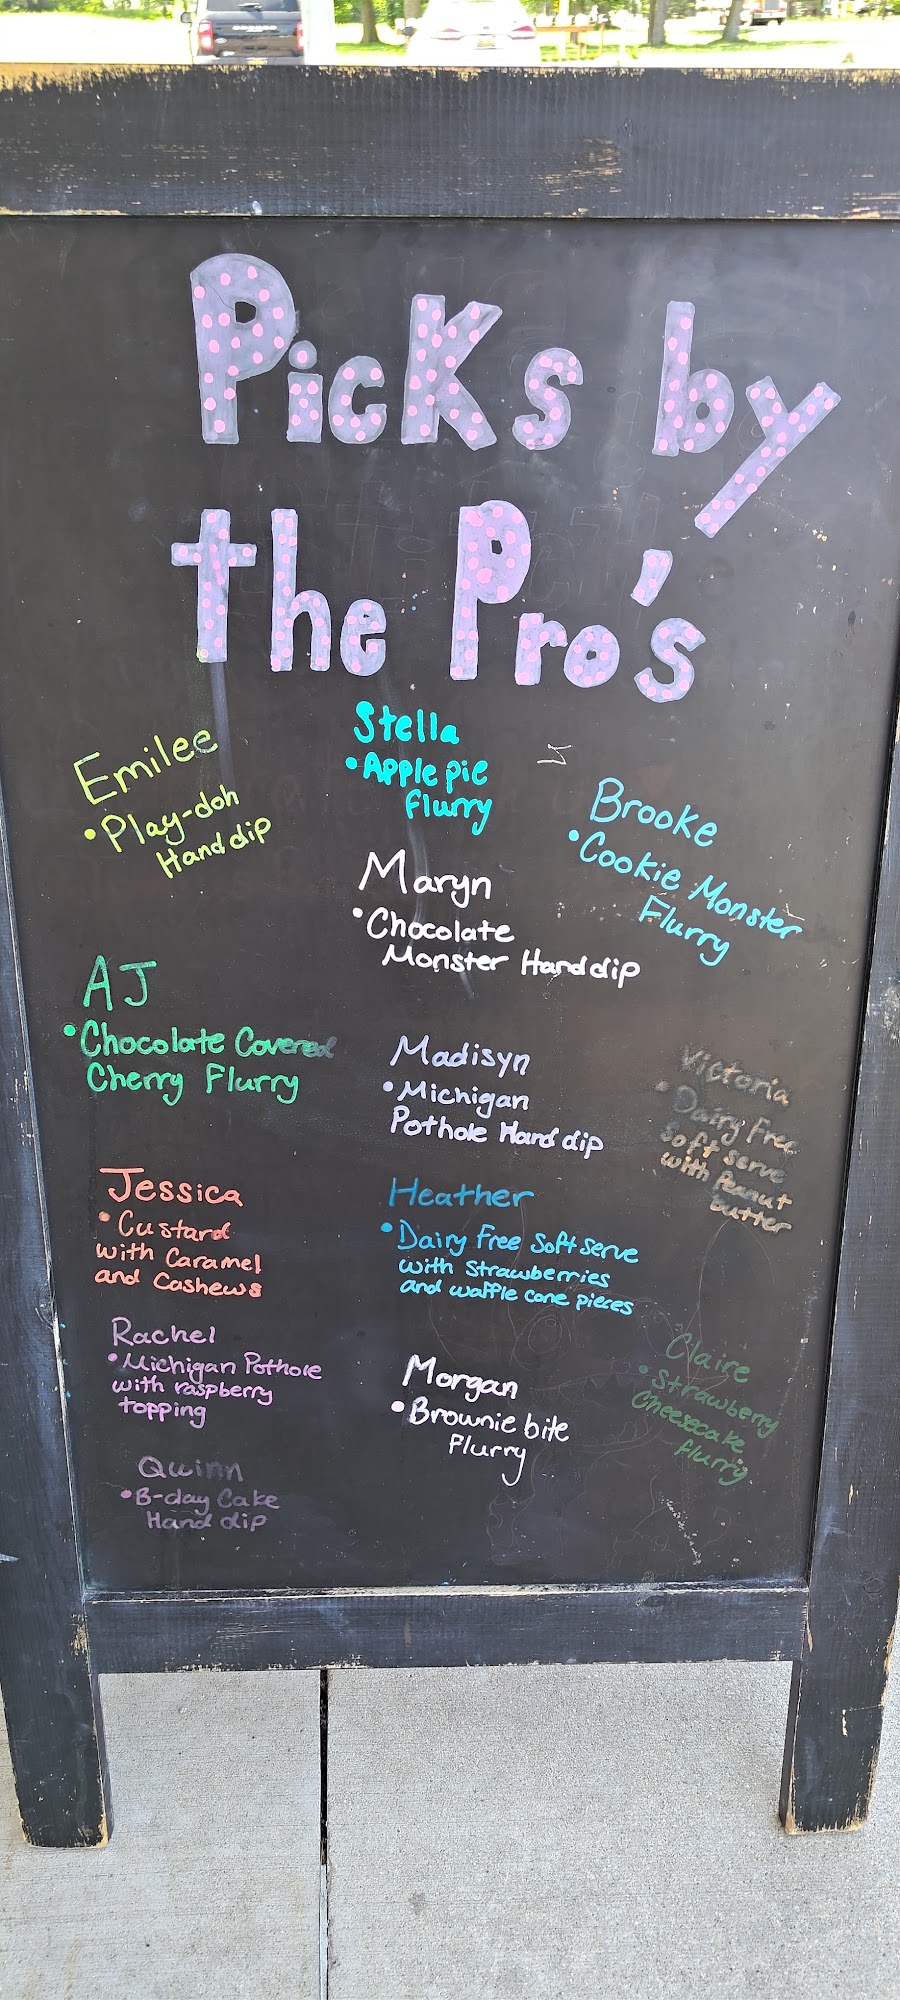 Picks by
the Pro's
Emilee
• Play-doh
Hand dip
Stella
• Apple pie
flurry
Brooke
• Cookie Monster
Flurry
Maryn
• Chocolate
Monster Hand dip
AJ
• Chocolate Covered
Cherry Flurry
Madisyn
• Michigan
Pothole Hand dip
Victoria
• Dairy Free
Soft serve
with Peanut
butter
Jessica
• Custard
with Caramel
and Cashews
Heather
• Dairy Free Soft serve
with Strawberries
and waffle cone pieces
Rachel
• Michigan Pothole
with raspberry
topping
Morgan
• Brownie bite
Flurry
Claire
• Strawberry
Cheesecake
flurry
Quinn
• B-day Cake
Hand dip